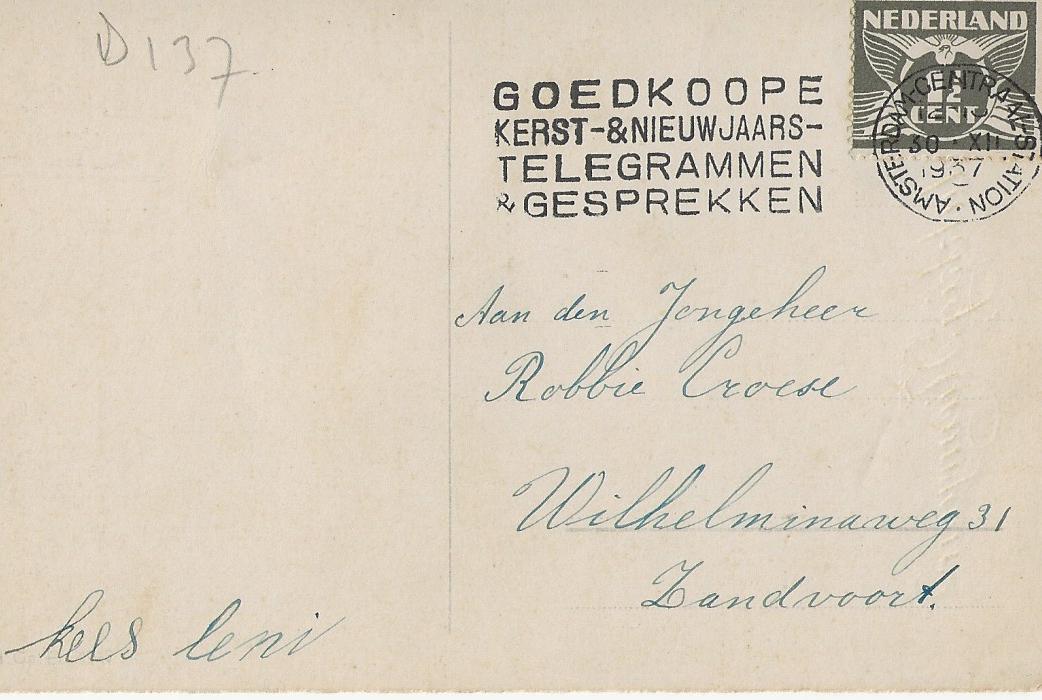 D 137
NEDERLAND
1½
CENT
AMSTERDAM-CENTRAAL-STATION
30 XII
1937
GOEDKOOPE
KERST-&NIEUWJAARS-
TELEGRAMMEN
& GESPREKKEN
Aan den Jongeheer
Robbie Croese
Wilhelminaweg 31
Zandvoort.
Kees Leni